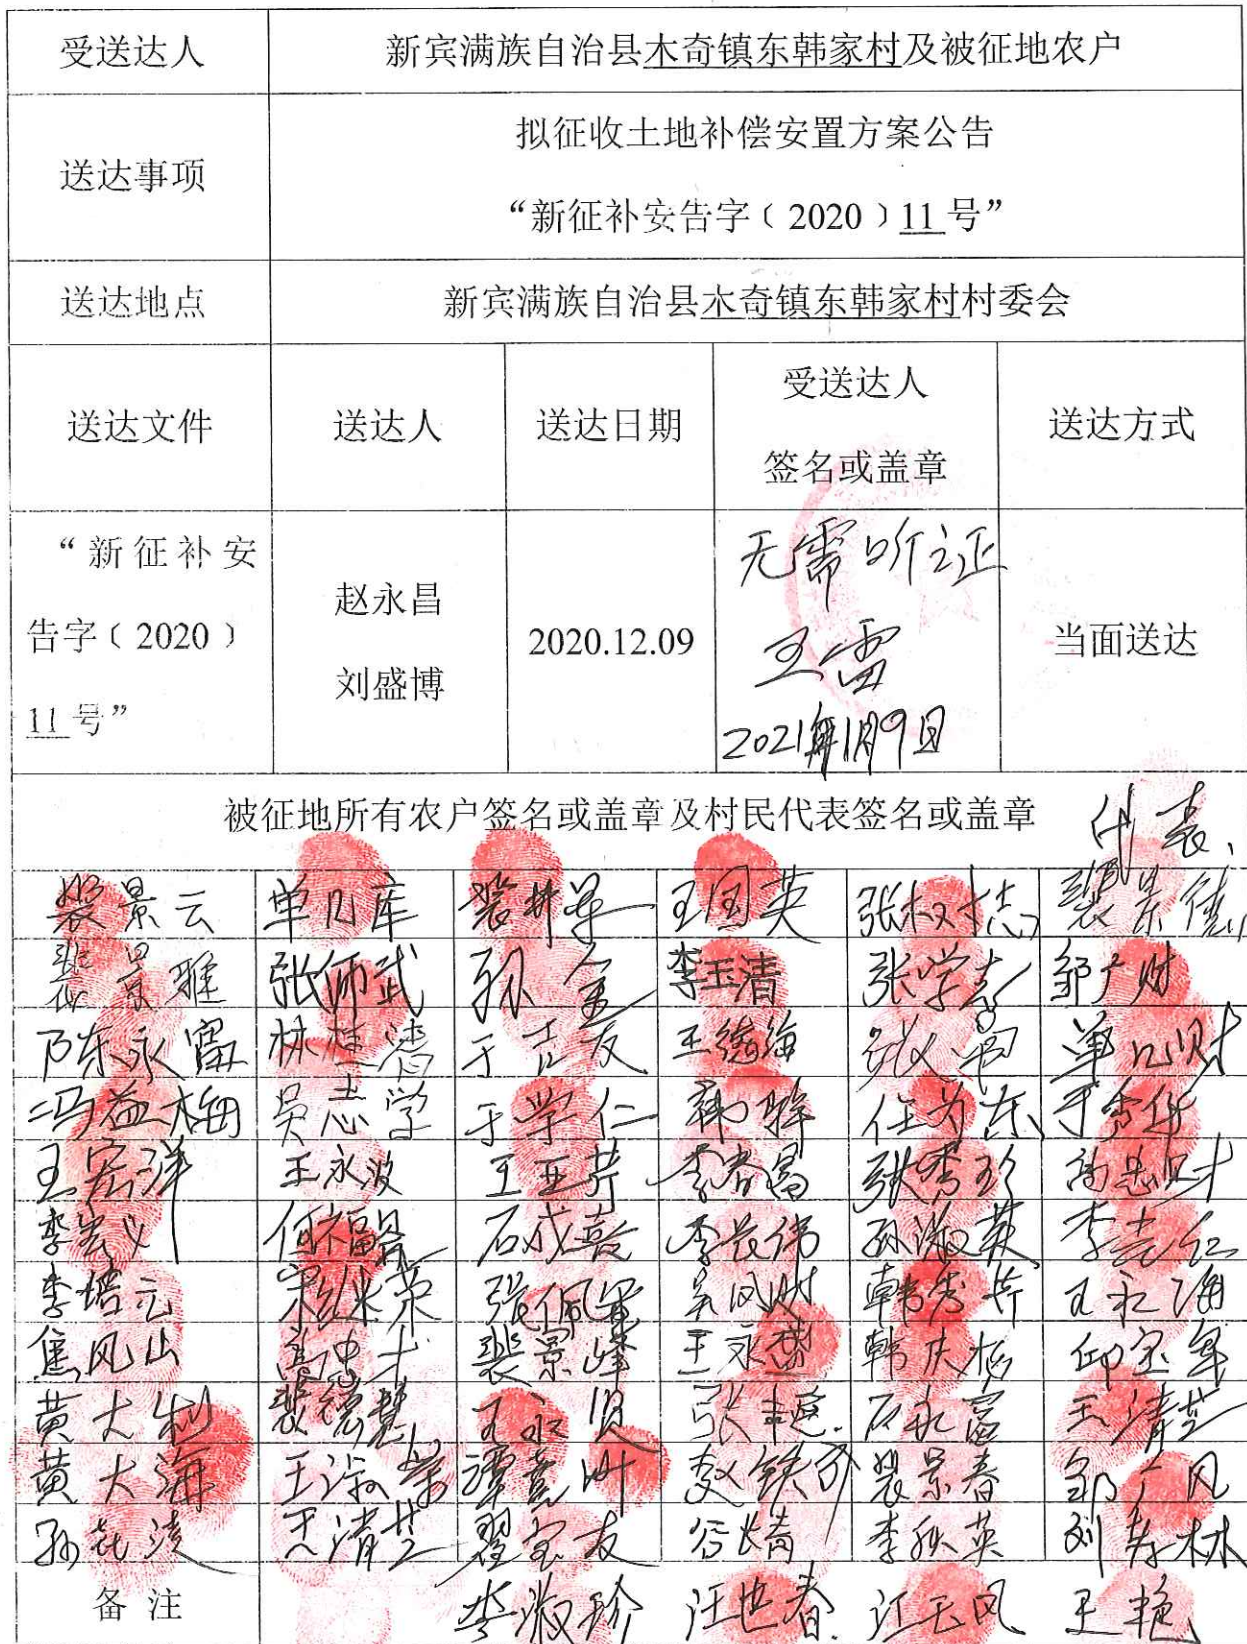 受送达人 新宾满族自治县木奇镇东韩家村及被征地农户
送达事项
拟征收土地补偿安置方案公告
“新征补安告字﹝2020﹞11号”
送达地点 新宾满族自治县木奇镇东韩家村村委会
送达文件 送达人 送达日期
受送达人
签名或盖章
送达方式
“新征补安
告字﹝2020﹞
11号”
赵永昌
刘盛博
2020.12.09
无需听证
王雷
2021年1月9日
当面送达
被征地所有农户签名或盖章及村民代表签名或盖章
代表
裴景云 单凡库 王国英 张权志 裴景德
裴景雅 张师武 孙金 李玉清 张学志 邹广财
陈永富 林桂清 于吉友 王德海 单凡财
冯益梅 吴志学 于学仁 韩辉 任为东 于秀华
王宏洋 王永波 王亚芹 李春富 张秀珍 尚忠财
李宏义 何福昌 石成喜 孙淑英 李吉仁
李培元 宋继荣 张佩军 吴凤财 韩秀芹 王永海
焦凤山 高忠才 裴景峰 王永楚 韩庆松 邱宝军
黄大利 裴德慧 王永贤 石永富 王清芝
黄大海 谭景财 赵铁成 裴景春 邹广凤
王清芝 翟宝友 李秋英 刘寿林
备注 李淑珍 汪世春 江玉凤 王艳